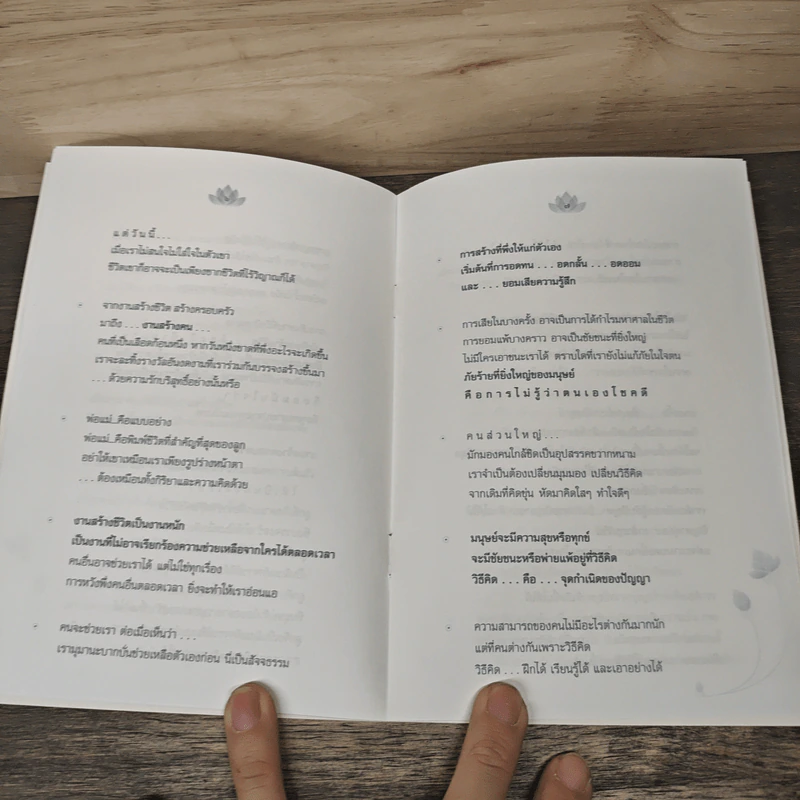 แต่วันนี้...
เมื่อเราไม่สนใจไม่ใส่ใจในตัวเขา
ชีวิตเขาก็อาจจะเป็นเพียงซากชีวิตที่ไร้วิญญาณก็ได้
จากงานสร้างชีวิต สร้างครอบครัว
มาถึง ... งานสร้างคน ...
คนที่เป็นเลือดก้อนหนึ่ง หากวันหนึ่งขาดที่พึ่งอะไรจะเกิดขึ้น
เราจะละทิ้งรางวัลอันงดงามที่เราร่วมกันบรรจงสร้างขึ้นมา
... ด้วยความรักบริสุทธิ์อย่างนั้นหรือ
พ่อแม่...คือแบบอย่าง
พ่อแม่...คือพิมพ์ชีวิตที่สำคัญที่สุดของลูก
อย่าให้เขาเหมือนเราเพียงรูปร่างหน้าตา
... ต้องเหมือนทั้งกิริยาและความคิดด้วย
งานสร้างชีวิตเป็นงานหนัก
เป็นงานที่ไม่อาจเรียกร้องความช่วยเหลือจากใครได้ตลอดเวลา
คนอื่นอาจช่วยเราได้ แต่ไม่ใช่ทุกเรื่อง
การหวังพึ่งคนอื่นตลอดเวลา ยิ่งจะทำให้เราอ่อนแอ
คนจะช่วยเรา ต่อเมื่อเห็นว่า ...
เรามุมานะบากบั่นช่วยเหลือตัวเองก่อน นี่เป็นสัจธรรม
การสร้างที่พึ่งให้แก่ตัวเอง
เริ่มต้นที่การอดทน ... อดกลั้น ... อดออม
และ ... ยอมเสียความรู้สึก
การเสียในบางครั้ง อาจเป็นการได้กำไรมหาศาลในชีวิต
การยอมแพ้บางคราว อาจเป็นชัยชนะที่ยิ่งใหญ่
ไม่มีใครเอาชนะเราได้ ตราบใดที่เรายังไม่แพ้ภัยในใจตน
ภัยร้ายที่ยิ่งใหญ่ของมนุษย์
คือการไม่รู้ว่าตนเองโชคดี
คนส่วนใหญ่...
มักมองคนใกล้ชิดเป็นอุปสรรคขวากหนาม
เราจำเป็นต้องเปลี่ยนมุมมอง เปลี่ยนวิธีคิด
จากเดิมที่คิดขุ่น หัดมาคิดใสๆ ทำใจดีๆ
มนุษย์จะมีความสุขหรือทุกข์
จะมีชัยชนะหรือพ่ายแพ้อยู่ที่วิธีคิด
วิธีคิด ... คือ ... จุดกำเนิดของปัญญา
ความสามารถของคนไม่มีอะไรต่างกันมากนัก
แต่ที่คนต่างกันเพราะวิธีคิด
วิธีคิด ... ฝึกได้ เรียนรู้ได้ และเอาอย่างได้